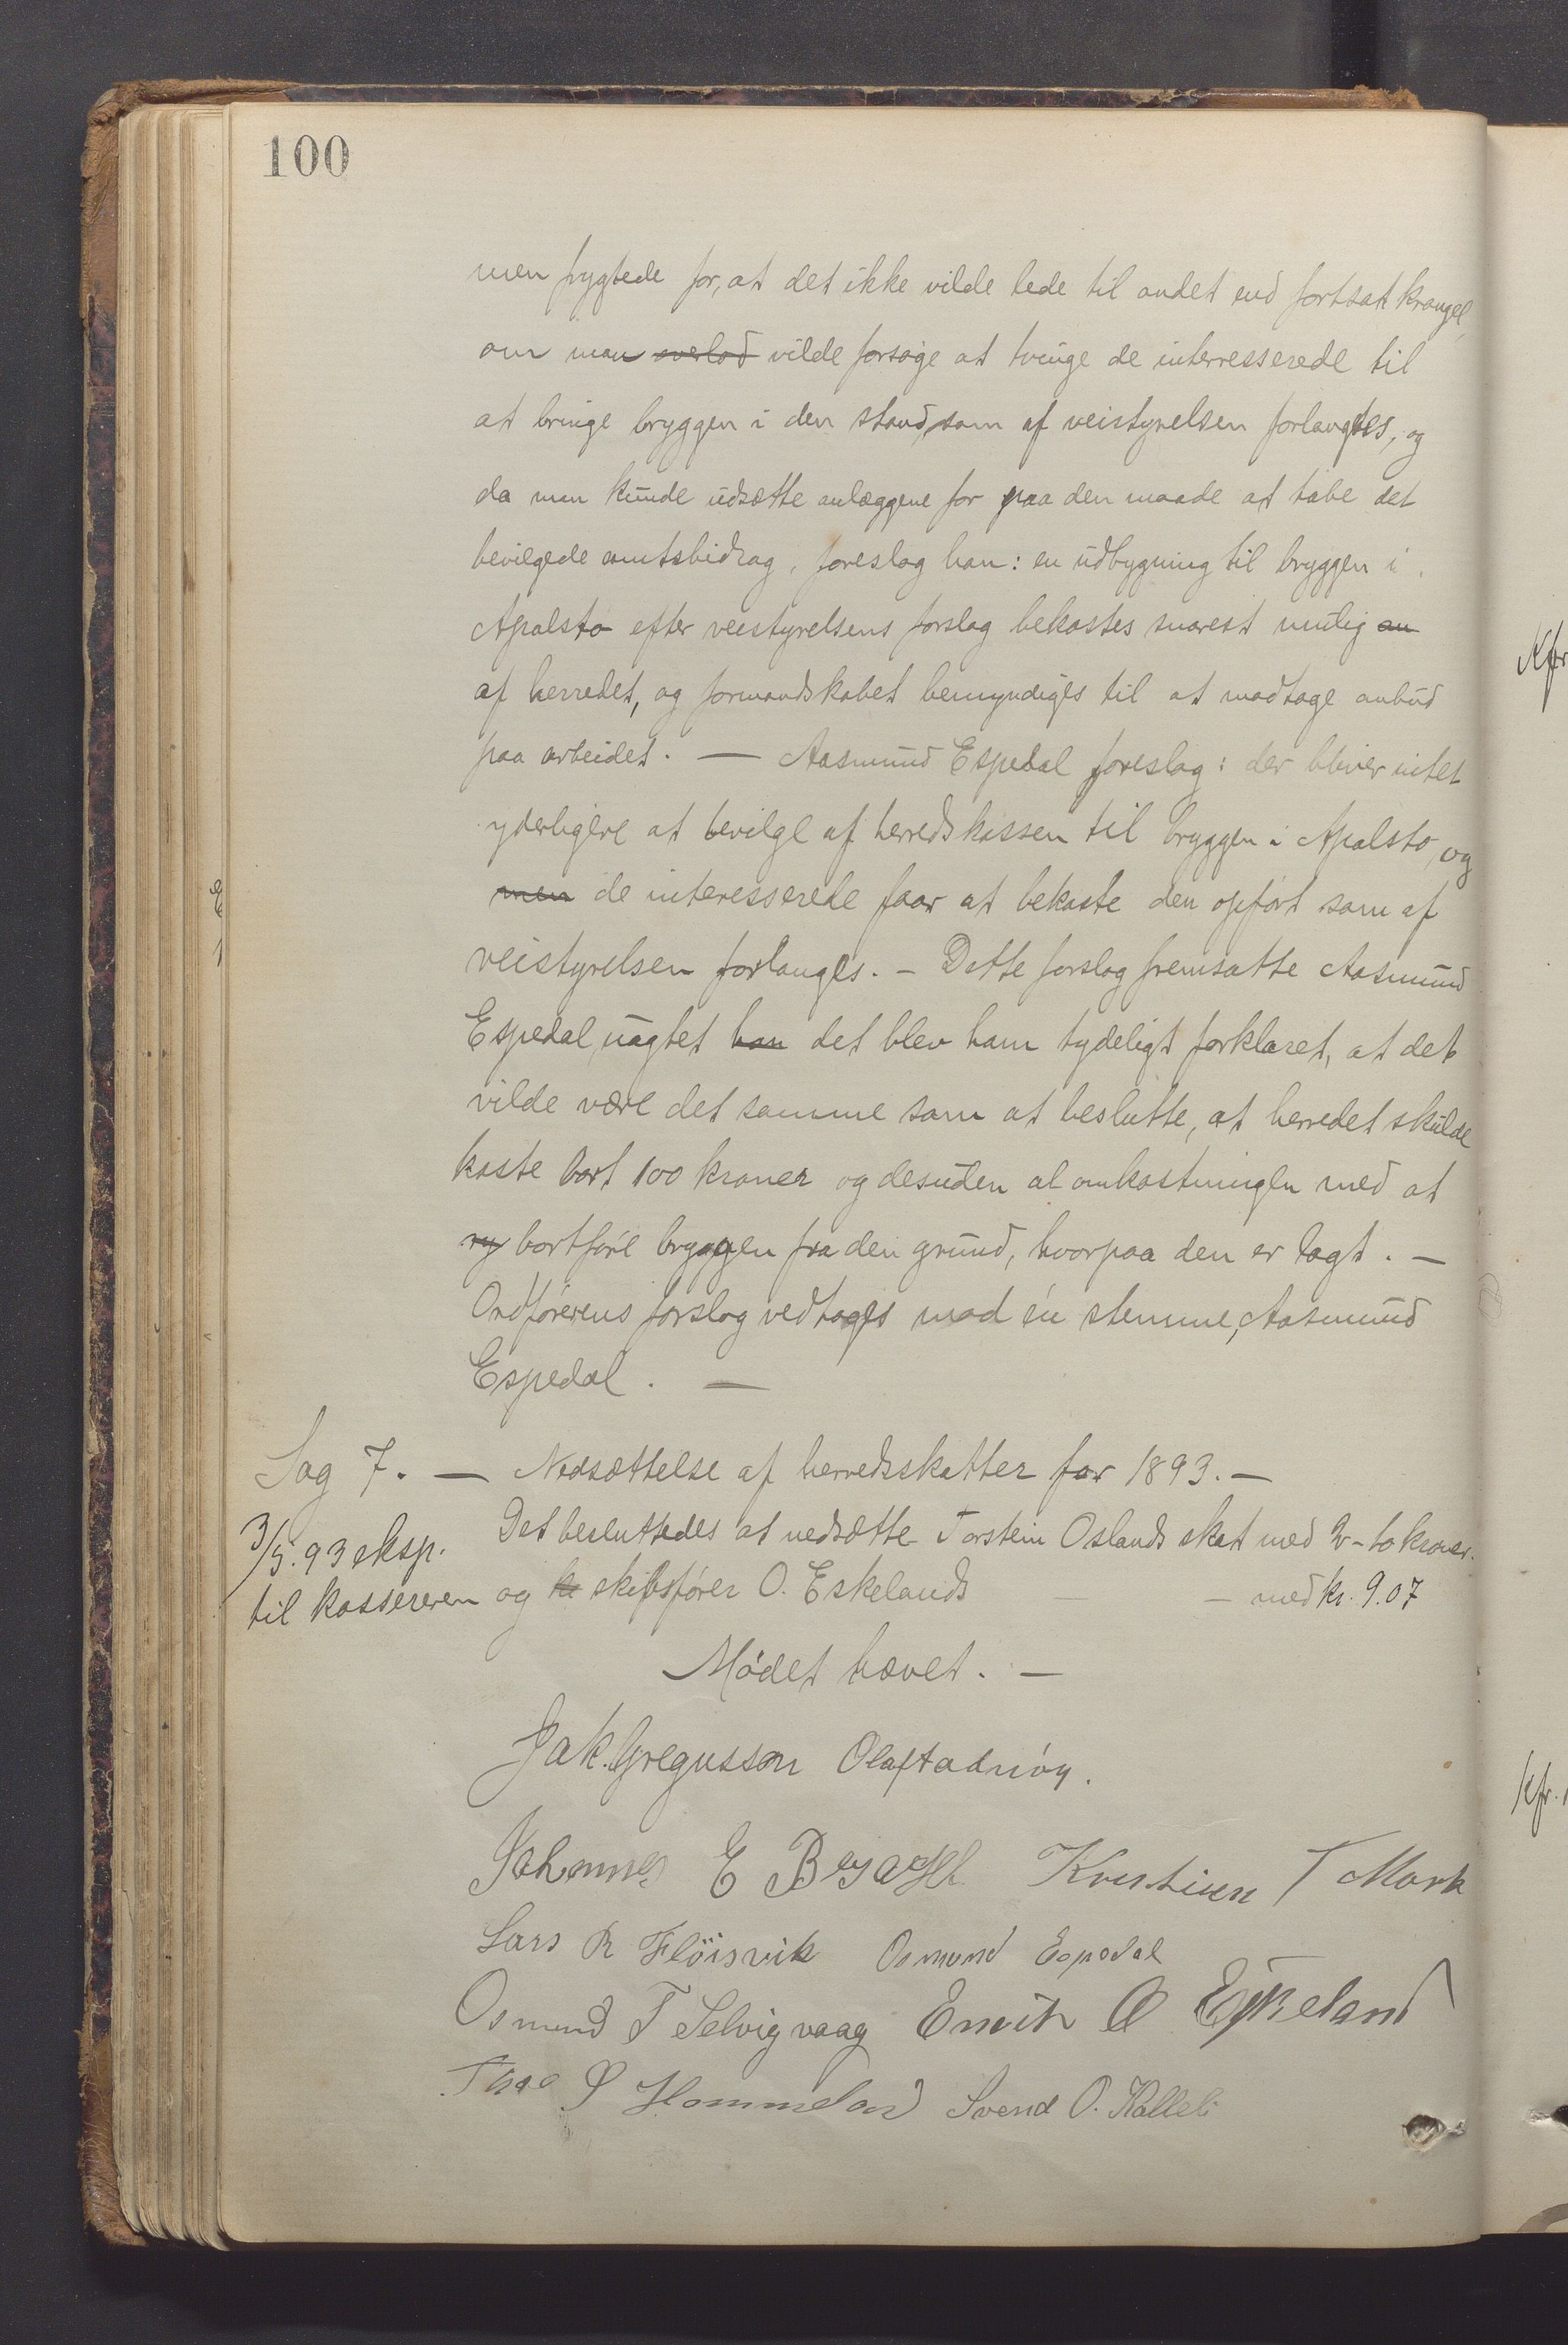 100
men frygtede for, at det ikke vilde lede til andet end fortsat krangel,
om man overlod vilde forsøge at tvinge de interresserede til
at bringe bryggen i den stand, som af veistyrelsen forlangtes, og
da man kunde udsætte anlæggene for paa den maade at tabe det
bevilgede amtsbidrag, foreslog han: en udbygning til bryggen i
Apalstø efter veistyrelsens forslag bekostes snarest mulig an
af herredet, og formandskabet bemyndiges til at modtage anbud
paa arbeidet. — Aasmund Espedal foreslog: der bliver intet
yderligere at bevilge af herredskassen til bryggen i Apalstø, og
men de interesserede faar at bekoste den opført som af
veistyrelsen forlanges. - Dette forslag fremsatte Aasmund
Espedal uagtet han det blev ham tydeligt forklaret, at det
vilde være det samme som at beslutte, at herredet skulde
kaste bort 100 kroner og desuden al omkostningen med at
ry bortføre bryggen fra den grund, hvorpaa den er lagt. —
Ordførerens forslag vedtoges mod én stemme, Aasmund
Espedal. —
Sag 7. — Nedsættelse af herredsskatter for 1893. —
Det besluttedes at nedsætte Torstein Oslands skat med 2 - to kroner.
og skibsfører O. Eskelands — — med kr. 9.07
3/5.93 eksp.
til kassereren
Mødet hævet. —
Jak. Gregusson Olaf Tadnøy.
Johannes E Kristian T Mork
Lars R Fløisvik Osmund Espedal
Osmund T Selvigvaag O Eskeland
Hommeland Svend O. Kalleli
Kfr
kfr.